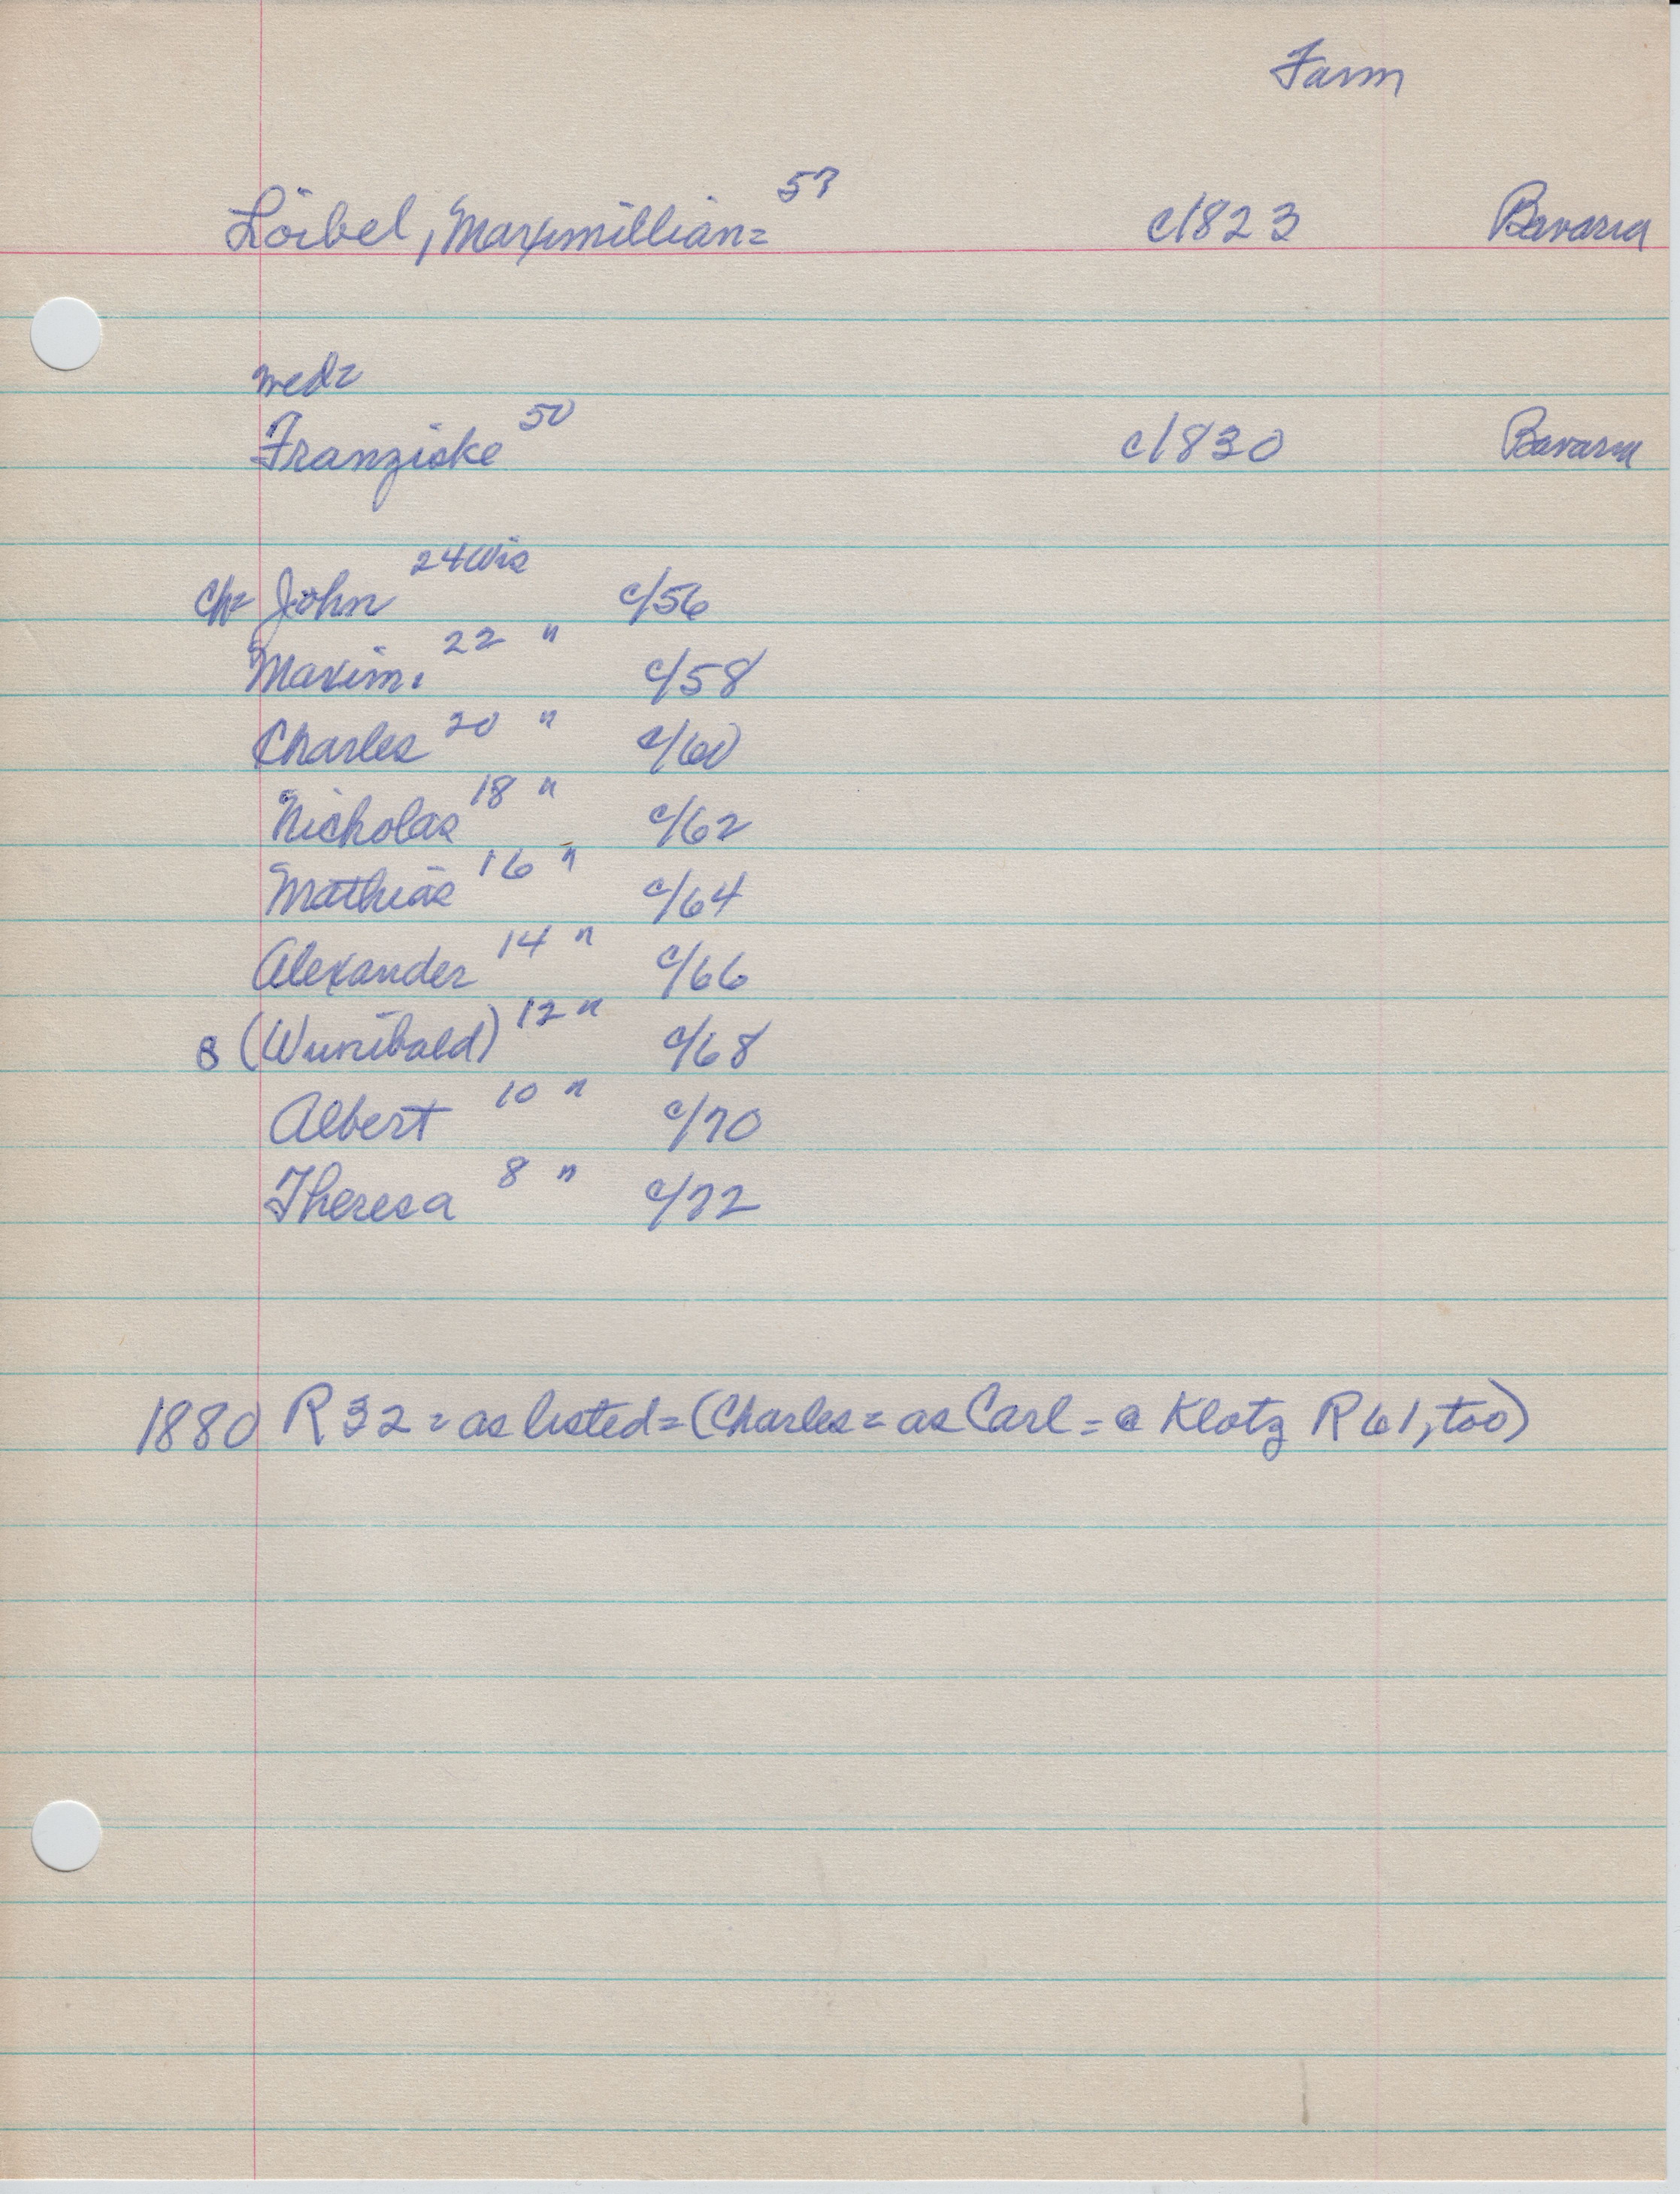 Farm
Loibel, Maxmillian= 57 c1823 Bavaria
med=
Franziske 50 c1830 Bavaria
ch= John 24 Wis c/56
Maxim. 22 " c/58
Charles 20 " c/60
Nicholas 18 " c/62
Mathias 16 " c/64
Alexander 14 " c/66
8 (Wunibald) 12 " c/68
Albert 10 " c/70
Theresa 8 " c/72
1880 R 32 = as listed = (Charles = as Carl = @ Klotz R 61, too)